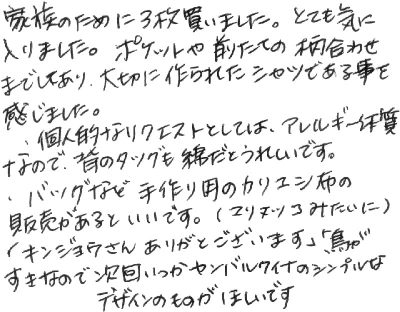 家族のために3枚買いました。とても気に
入りました。ポケットや前たての柄合わせ
までしてあり、大切に作られたシャツである事を
感じました。
・個人的なリクエストとしては、アレルギー体質
なので、背のタグも綿だとうれしいです。
・バッグなど手作り用のカリユシ布の
販売があるといいです。(マリメッコみたいに)
「キンジョウさんありがとございます」「鳥が
すきなので次回いつかヤンバルクイナのシンプルな
デザインのものがほしいです